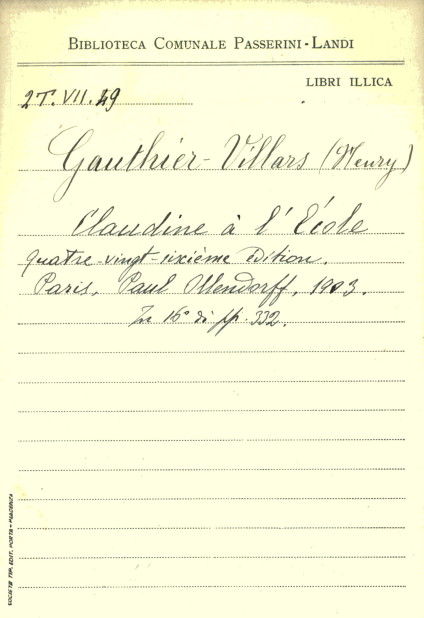 BIBLIOTECA COMUNALE PASSERINI-LANDI
LIBRI ILLICA
2T.VII.49
Gauthier-Villars (Henry)
Claudine à l'École
Quatre-vingt-sixième édition.
Paris, Paul Ollendorff, 1903.
In 16° di pp. 332.
SOCIETÀ TIP. EDIT. PORTA - PIACENZA